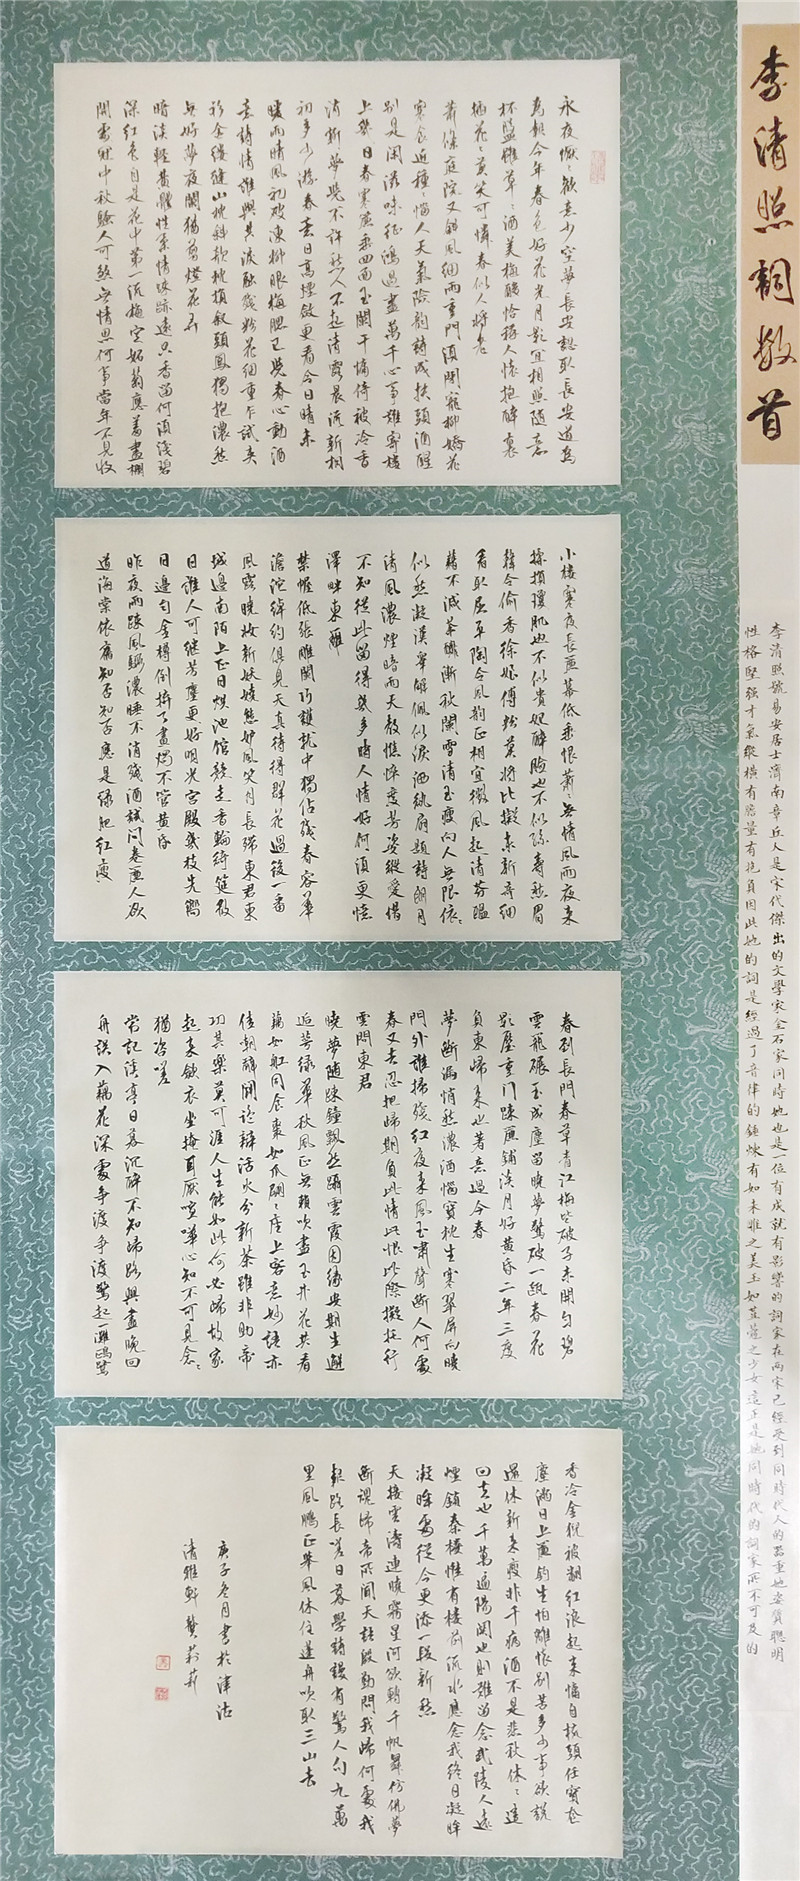 李清照詞數首
李清照號易安居士濟南章丘人是宋代傑出的文學家金石家同時她也是一位有成就有影響的詞家在兩宋已經受到同時代人的器重她姿質聰明
性格堅强才氣縱橫有膽量有抱負因此她的詞是經過了音律的錘煉有如未雕之美玉如荳蔻之少女這正是她同時代的詞家所不可及的
永夜懨懨歡意少空夢長安認取長安道為
報今年春色好花光月影宜相照隨意
杯盤雖草草酒美梅酸恰稱人懷抱醉裏
插花花莫笑可憐春似人將老
蕭條庭院又斜風細雨重門須閉寵柳嬌花
寒食近種種惱人天氣險韵詩成扶頭酒醒
別是閑滋味征鴻過盡萬千心事難寄樓
上幾日春寒簾垂四面玉闌干慵倚被冷香
消新夢覺不許愁人不起清露晨流新桐
初引多少游春意日高煙斂更看今日晴未
暖雨晴風初破凍柳眼梅腮已覺春心動酒
意詩情誰與共淚融殘粉花鈿重乍試夾
衫金縷縫山枕斜欹枕損釵頭鳳獨抱濃愁
無好夢夜闌猶剪燈花弄
暗淡輕黃體性柔情疎跡遠只香留何須淺碧
深紅色自是花中第一流梅定妒菊應羞畫欄
開處冠中秋騷人可煞無情思何事當年不見收
小樓寒夜長簾幕低垂恨蕭蕭無情風雨夜來
揉損瓊肌也不似貴妃醉臉也不似孫壽愁眉
韓令偷香徐娘傅粉莫將比擬未新奇細
看取屈平陶令風韵正相宜微風起清芬醞
藉不減荼蘼漸秋闌雪清玉瘦向人無限依依
似愁凝漢皋解佩似淚洒紈扇題詩朗月
清風濃煙暗雨天教憔悴度芳姿縱愛惜
不知從此留得幾多時人情好何須更憶
澤畔東籬
禁幄低張雕闌巧護就中獨佔殘春容華
澹沱綽約俱見天真待得群花過後一番
風露曉妝新妖嬈態妒風笑月長殢東君東
城邊南陌上正日烘池館競走香輪綺筵散
日誰人可繼芳塵更好明光宮殿幾枝先嚮
日邊勻金樽倒拚了畫燭不管黃昏
昨夜雨疎風驟濃睡不消殘酒試問卷簾人欲
道海棠依舊知否知否應是綠肥紅瘦
春到長門春草青江梅些破子未開勻碧
雲籠碾玉成塵留曉夢驚破一甌春花
影壓重門疎簾鋪淡月好黃昏二年三度
負東歸來也著意過今春
夢斷漏悄愁濃酒惱寶枕生寒翠屏向曉
門外誰掃殘紅夜來風玉嘯聲斷人何處
春又去忍把歸期負此情此恨此際擬托行
雲問東君
曉夢隨疎鐘飄然躡雲霞因緣安期生邂
逅萼綠華秋風正無賴吹盡玉井花共看
藕如船同食棗如瓜翩翩座上客意妙語亦
佳嘲辭鬬詭辯活火分新茶雖非助帝
功其樂莫可涯人生能如此何必歸故家
起來斂衣坐掩耳厭喧嘩心知不可見念念
猶咨嗟
常記溪亭日暮沉醉不知歸路興盡晚回
舟誤入藕花深處爭渡爭渡驚起一灘鷗鷺
香冷金猊被翻紅浪起來慵自梳頭任寶奩
塵滿日上簾鈎生怕離懷別苦多少事欲說
還休新來瘦非干病酒不是悲秋休休這
回去也千萬遍陽關也則難留念武陵人遠
煙鎖秦樓惟有樓前流水應念我終日凝眸
凝眸處從今更添一段新愁
天接雲濤連曉霧星河欲轉千帆舞仿佩夢
斷魂歸帝所聞天語殷勤問我歸何處我
報路長嗟日暮學詩謾有驚人句九萬
里風鵬正舉風休住蓬舟吹取三山去
庚子冬月書於津沽
清雅軒